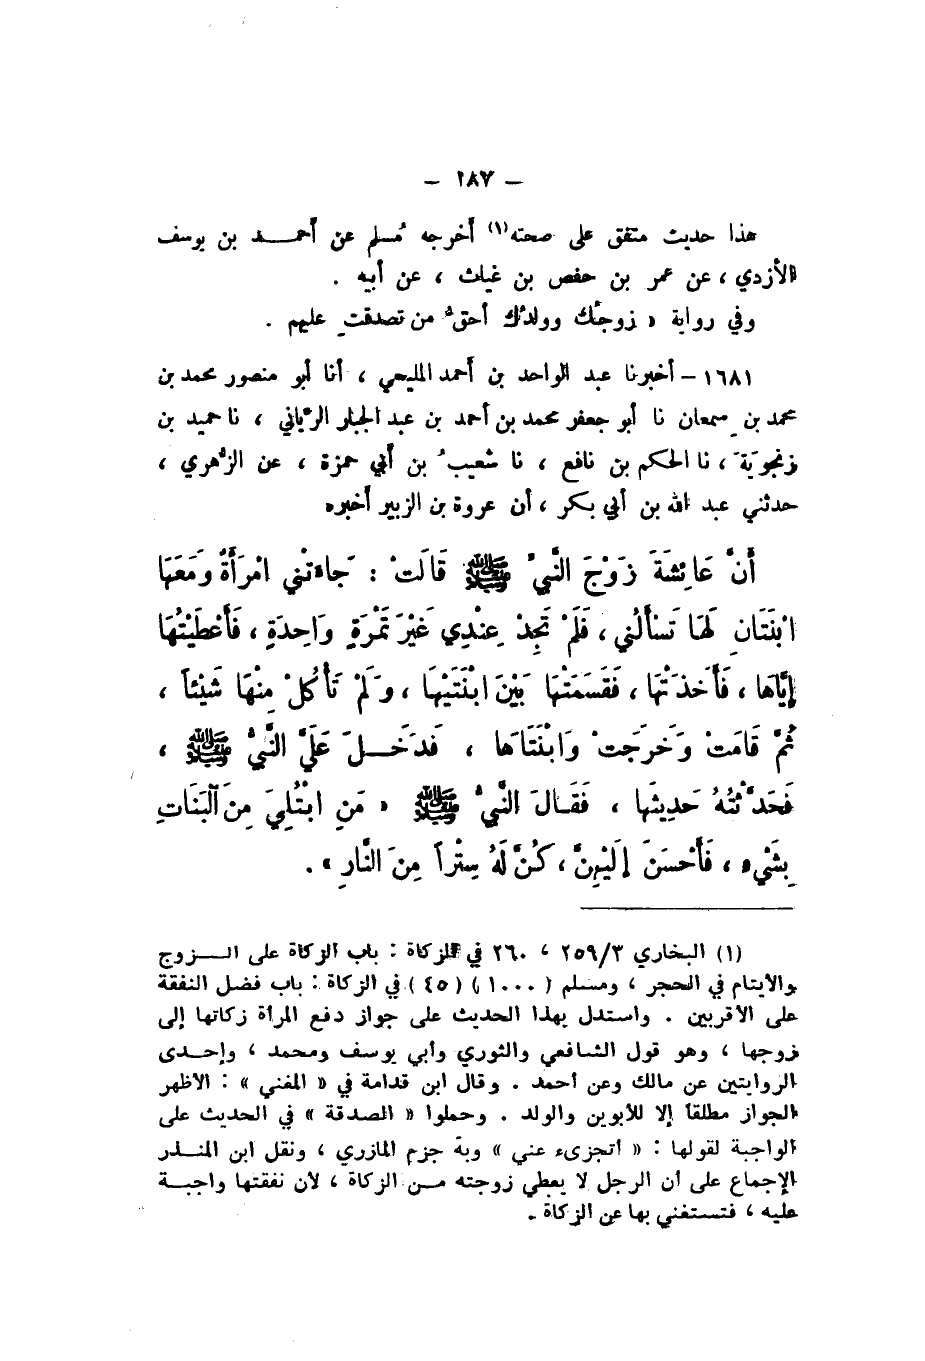 – ١٨٧ –
هذا حديث متفق على صحته(١) أخرجه مُسلم عن أحمــد بن يوسف
الأزدي ، عن عمر بن حفص بن غياث ، عن أبيه .
وفي رواية « زوجُك وولدُك أحقُّ من تصدقتِ عليهم .
١٦٨١ – أخبرنا عبد الواحد بن أحمد المليحي ، أنا أبو منصور محمد بن
محمد بن سِمعان نا أبو جعفر محمد بن أحمد بن عبد الجبار الرَّياني ، نا حميد بن
زنجويَة ، نا الحكم بن نافع ، نا شعيبُ بن أبي حمزة ، عن الزُّهري ،
حدثني عبد الله بن أبي بكر ، أن عروة بن الزبير أخبره
أَنَّ عَائِشَةَ زَوْجَ النَّبِيِّ ﷺ قَالَتْ : جَاءَتْني امْرَأَةٌ وَمَعَهَا
ابْنَتَانِ لَهَا تَسْأَلُني ، فَلَمْ تَجِدْ عِنْدِي غَيْرَ تَمْرَةٍ وَاحِدَةٍ ، فَأَعْطَيْتُهَا
إِيَّاهَا ، فَأَخَذَتْهَا ، فَقَسَمَتْهَا بَيْنَ ابْنَتَيْهَا ، وَلَمْ تَأْكُلْ مِنْهَا شَيْئاً ،
ثُمَّ قَامَتْ وَخَرَجَتْ وَابْنَتَاهَا ، فَدَخَــلَ عَلَيَّ النَّبِيُّ ﷺ ،
فَحَدَّثْتُهُ حَدِيثَهَا ، فَقَــالَ النَّبِيُّ ﷺ « مَنِ ابْتُلِيَ مِنَ الْبَنَاتِ
بِشَيْءٍ ، فَأَحْسَنَ إِلَيْهِنَّ ، كُنَّ لَهُ سِتْراً مِنَ النَّارِ » .
(١) البخاري ٢٥٩/٣ ، ٢٦٠ في الزكاة : باب الزكاة على الــزوج
والايتام في الحجر ، ومسلم ( ١٠٠٠ ) ( ٤٥ ) في الزكاة : باب فضل النفقة
على الاقربين . واستدل بهذا الحديث على جواز دفع المرأة زكاتها إلى
زوجها ، وهو قول الشافعي والثوري وأبي يوسف ومحمد ، وإحــدى
الروايتين عن مالك وعن أحمد . وقال ابن قدامة في « المغني » : الاظهر
الجواز مطلقاً إلا للأبوين والولد . وحملوا « الصدقة » في الحديث على
الواجبة لقولها : « أتجزىء عني » وبه جزم المازري ، ونقل ابن المنــذر
الإجماع على أن الرجل لا يعطي زوجته مــن الزكاة ، لأن نفقتها واجبــة
عليه ، فتستغني بها عن الزكاة .